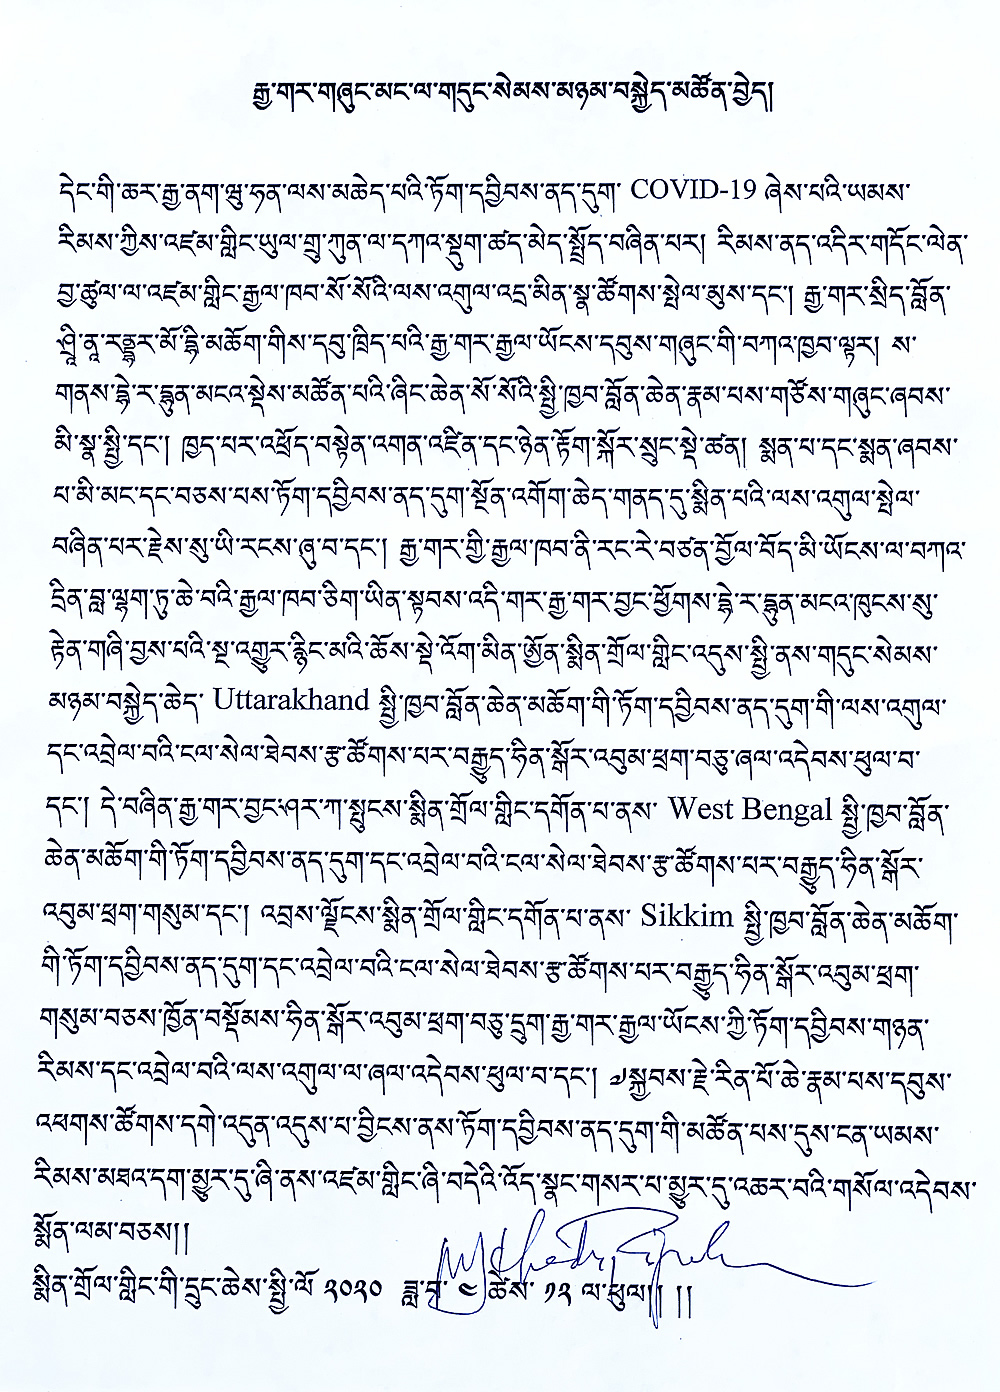 རྒྱ་གར་གཞུང་མང་ལ་གདུང་སེམས་མཉམ་བསྐྱེད་མཚོན་བྱེད།
དེང་གི་ཆར་རྒྱ་ནག་ཝུ་ཧན་ལས་མཆེད་པའི་ཏོག་དབྱིབས་ནད་དུག་ COVID-19 ཞེས་པའི་ཡམས་
རིམས་ཀྱིས་འཛམ་གླིང་ཡུལ་གྲུ་ཀུན་ལ་དཀའ་སྡུག་ཚད་མེད་སྤྲོད་བཞིན་པར། རིམས་ནད་འདིར་གདོང་ལེན་
བྱ་ཚུལ་ལ་འཛམ་གླིང་རྒྱལ་ཁབ་སོ་སོའི་ལས་འགུལ་འདྲ་མིན་སྣ་ཚོགས་སྤེལ་མུས་དང༌། རྒྱ་གར་སྲིད་བློན་
ཤྲཱི་ནཱ་རནྡྲར་མོ་དྷི་མཆོག་གིས་དབུ་ཁྲིད་པའི་རྒྱ་གར་རྒྱལ་ཡོངས་དབུས་གཞུང་གི་བཀའ་ཁྱབ་ལྟར། ས་
གནས་ཌེ་ར་ཌཱུན་མངའ་སྡེས་མཚོན་པའི་ཞིང་ཆེན་སོ་སོའི་སྤྱི་ཁྱབ་བློན་ཆེན་རྣམ་པས་གཙོས་གཞུང་ཞབས་
མི་སྣ་སྤྱི་དང༌། ཁྱད་པར་འཕྲོད་བསྟེན་འགན་འཛིན་དང་ཉེན་རྟོག་སྐོར་སྲུང་སྡེ་ཚན། སྨན་པ་དང་སྨན་ཞབས་
པ་མི་མང་དང་བཅས་པས་ཏོག་དབྱིབས་ནད་དུག་སྔོན་འགོག་ཆེད་གནད་དུ་སྨིན་པའི་ལས་འགུལ་སྤེལ་
བཞིན་པར་རྗེས་སུ་ཡི་རངས་ཞུ་བ་དང༌། རྒྱ་གར་གྱི་རྒྱལ་ཁབ་ནི་རང་རེ་བཙན་བྱོལ་བོད་མི་ཡོངས་ལ་བཀའ་
དྲིན་བླ་ལྷག་ཏུ་ཆེ་བའི་རྒྱལ་ཁབ་ཅིག་ཡིན་སྟབས་འདི་གར་རྒྱ་གར་བྱང་ཕྱོགས་ཌེ་ར་ཌཱུན་མངའ་ཁུངས་སུ་
རྟེན་གཞི་བྱས་པའི་སྔ་འགྱུར་རྙིང་མའི་ཆོས་སྡེ་འོག་མིན་ཨོ་རྒྱན་སྨིན་གྲོལ་གླིང་འདུས་སྤྱི་ནས་གདུང་སེམས་
མཉམ་བསྐྱེད་ཆེད་ Uttarakhand སྤྱི་ཁྱབ་བློན་ཆེན་མཆོག་གི་ཏོག་དབྱིབས་ནད་དུག་གི་ལས་འགུལ་
དང་འབྲེལ་བའི་ངལ་སེལ་ཐེབས་རྩ་ཚོགས་པར་བརྒྱུད་ཧིན་སྒོར་འབུམ་ཕྲག་བཅུ་ཞལ་འདེབས་ཕུལ་བ་
དང༌། དེ་བཞིན་རྒྱ་གར་བྱང་ཤར་ཀ་སྤུངས་སྨིན་གྲོལ་གླིང་དགོན་པ་ནས་ West Bengal སྤྱི་ཁྱབ་བློན་
ཆེན་མཆོག་གི་ཏོག་དབྱིབས་ནད་དུག་དང་འབྲེལ་བའི་ངལ་སེལ་ཐེབས་རྩ་ཚོགས་པར་བརྒྱུད་ཧིན་སྒོར་
འབུམ་ཕྲག་གསུམ་དང༌། འབྲས་ལྗོངས་སྨིན་གྲོལ་གླིང་དགོན་པ་ནས་ Sikkim སྤྱི་ཁྱབ་བློན་ཆེན་མཆོག་
གི་ཏོག་དབྱིབས་ནད་དུག་དང་འབྲེལ་བའི་ངལ་སེལ་ཐེབས་རྩ་ཚོགས་པར་བརྒྱུད་ཧིན་སྒོར་འབུམ་ཕྲག་
གསུམ་བཅས་ཁྱོན་བསྡོམས་ཧིན་སྒོར་འབུམ་ཕྲག་བཅུ་དྲུག་རྒྱ་གར་རྒྱལ་ཡོངས་ཀྱི་ཏོག་དབྱིབས་གཉན་
རིམས་དང་འབྲེལ་བའི་ལས་འགུལ་ལ་ཞལ་འདེབས་ཕུལ་བ་དང༌། ༧སྐྱབས་རྗེ་རིན་པོ་ཆེ་རྣམ་པས་དབུས་
འཕགས་ཚོགས་དགེ་འདུན་འདུས་པ་བྱིངས་ནས་ཏོག་དབྱིབས་ནད་དུག་གི་མཚོན་པས་དུས་ངན་ཡམས་
རིམས་མཐའ་དག་མྱུར་དུ་ཞི་ནས་འཛམ་གླིང་ཞི་བདེའི་འོད་སྣང་གསར་པ་མྱུར་དུ་འཆར་བའི་གསོལ་འདེབས་
སྨོན་ལམ་བཅས།།
སྨིན་གྲོལ་གླིང་གི་དྲུང་ཆེས་སྤྱི་ལོ་ ༢༠༢༠ ཟླ་བ་ ༤ ཚེས་ ༡༢ ལ་ཕུལ།། །།